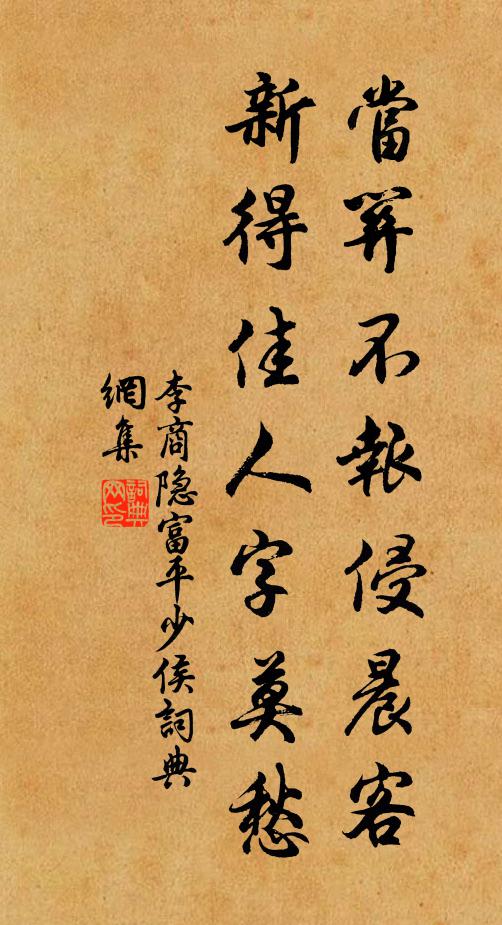 當關不報侵晨客
新得佳人字莫愁
李商隐富平少侯詞典
網集
詞典
网印